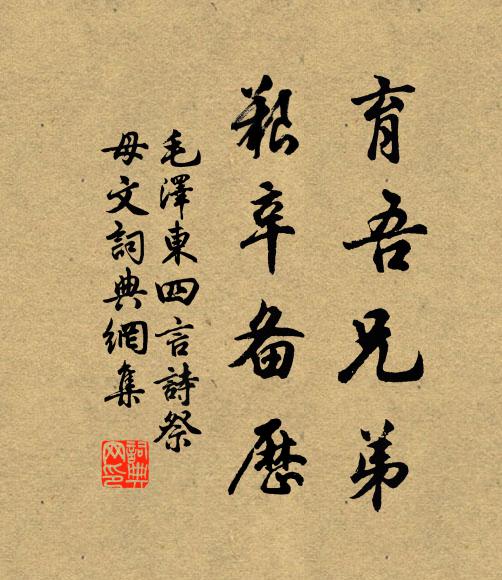 育吾兄弟
艱辛备歷
毛澤東四言詩祭
母文詞典網集
詞典网印